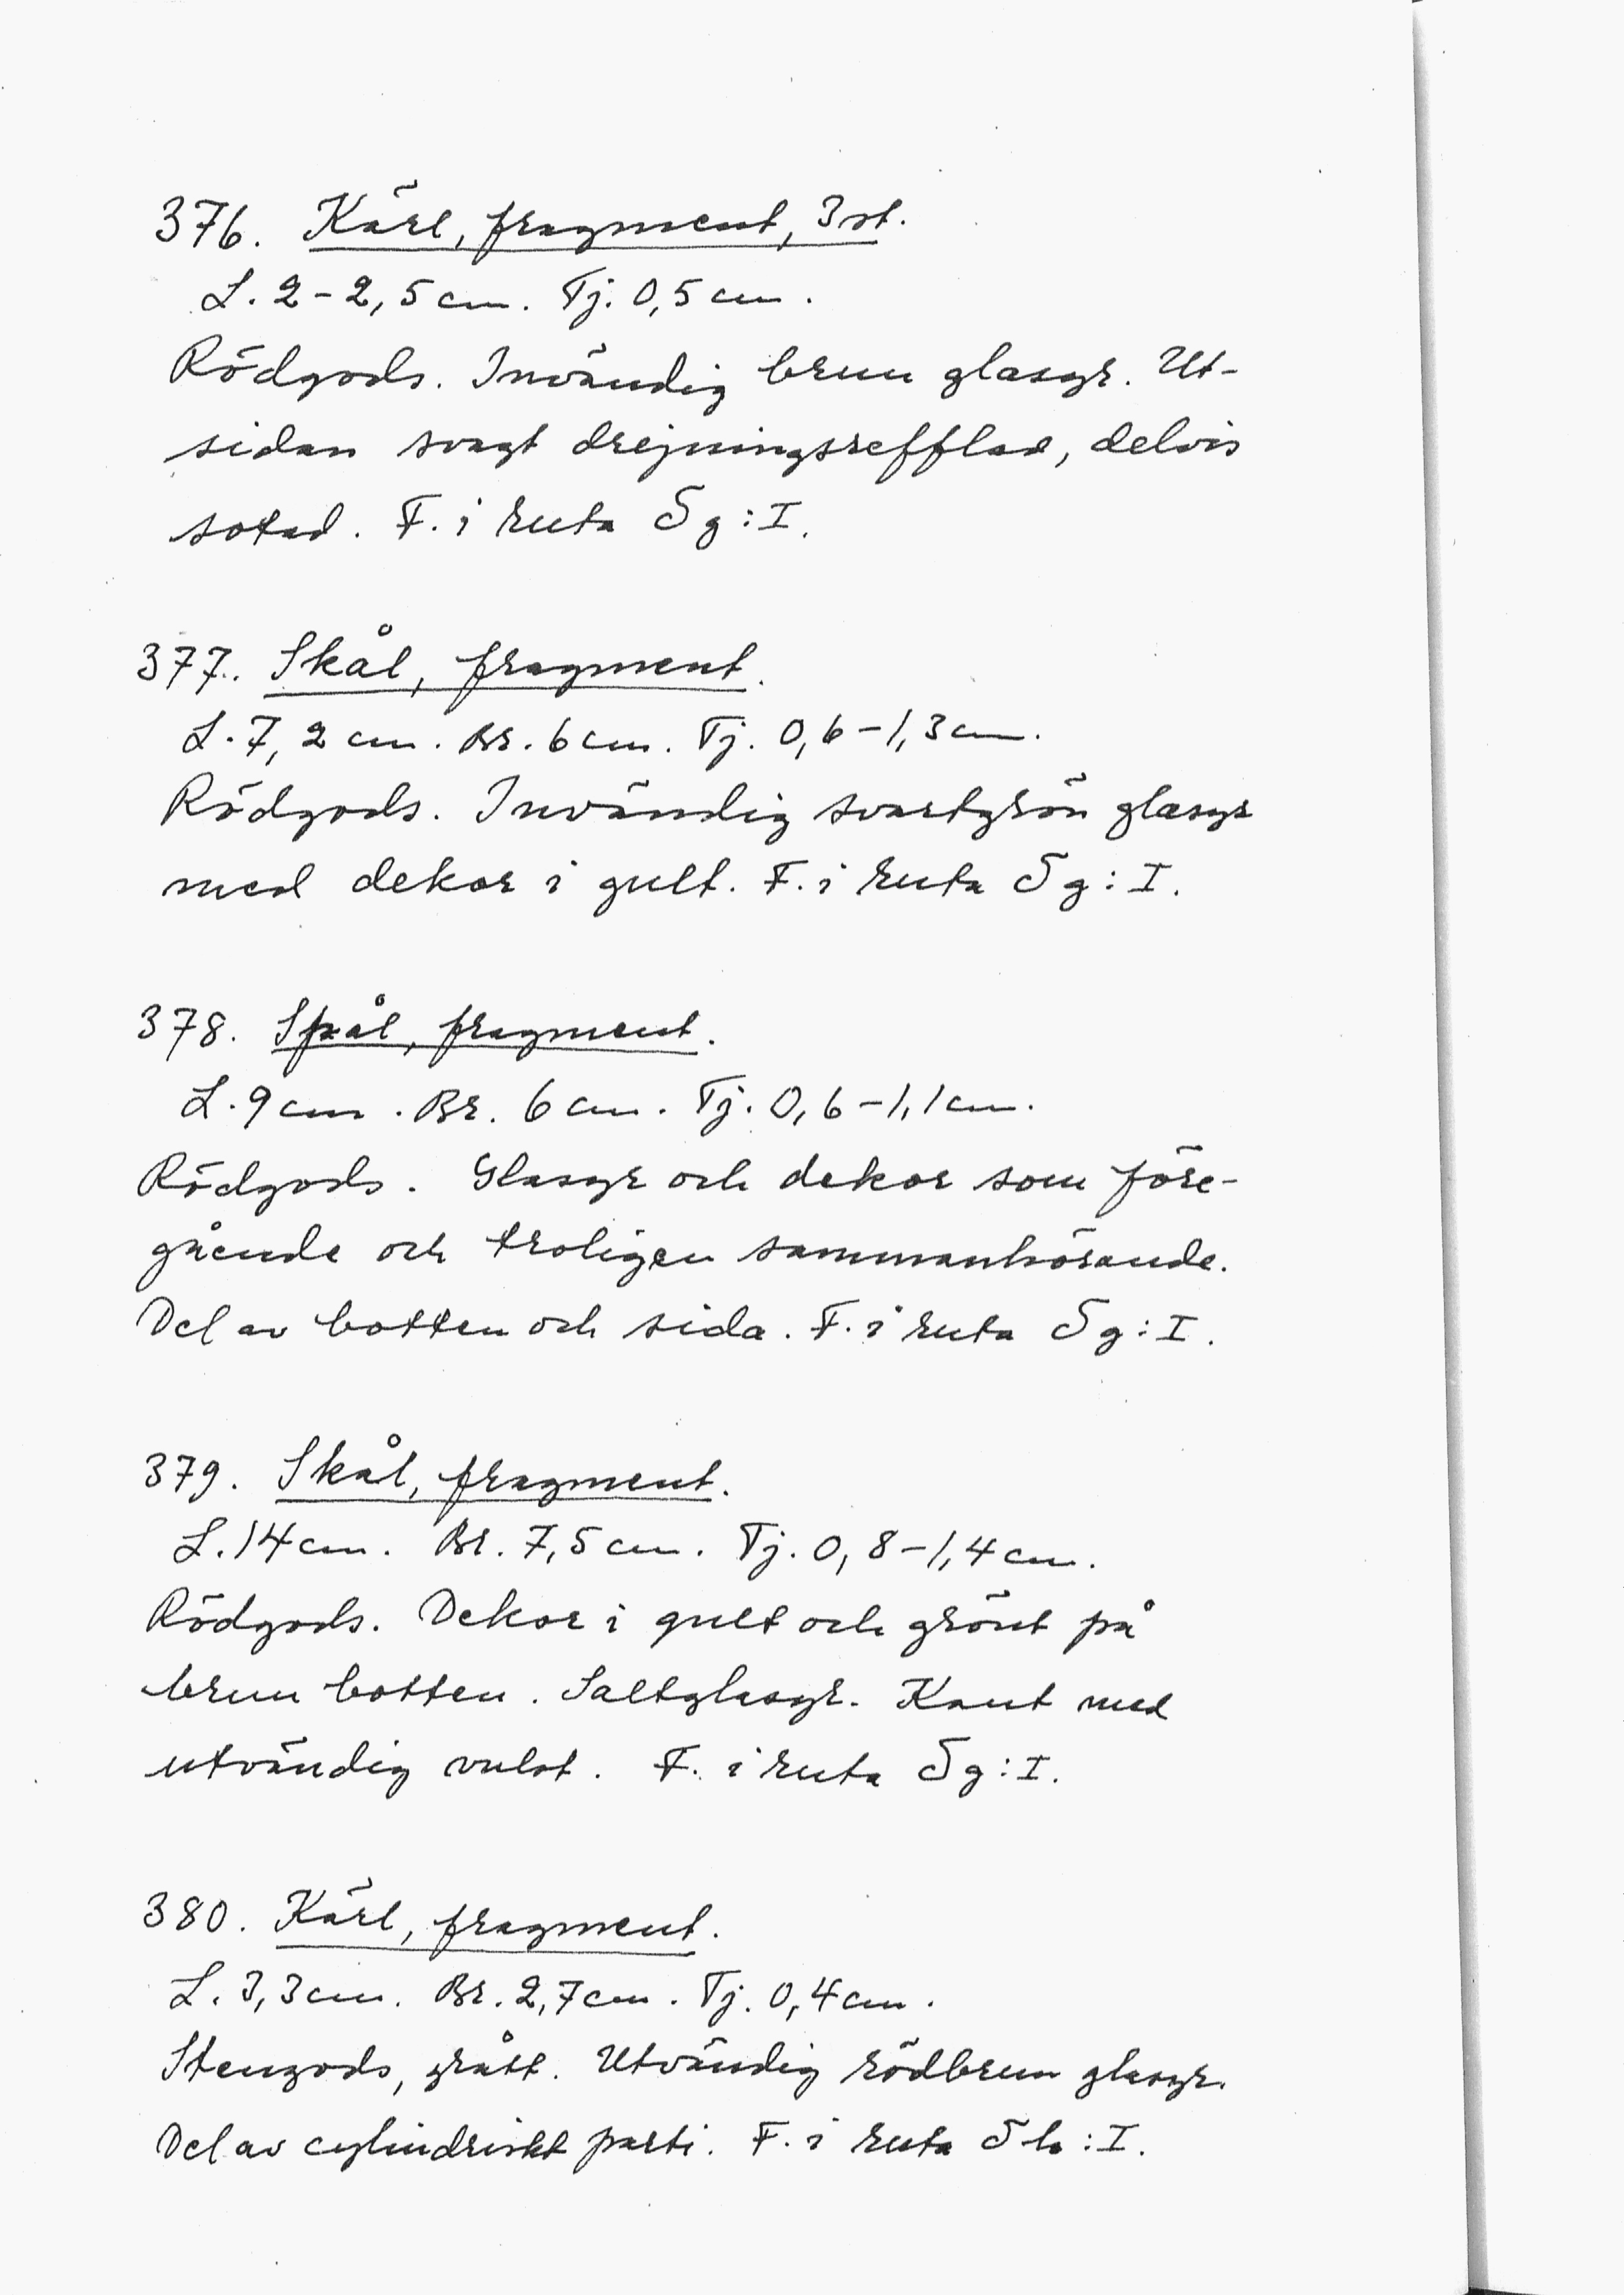 376. Kärl, fragment, 3 st.
L. 2-2,5 cm. Tj. 0,5 cm.
Rödgods. Invändig brun glasyr. Ut-
sidan svagt drejningsrefflad, delvis
sotad. F. i ruta 5g:I.
377. Skål, fragment.
L. 7,2 cm. Br. 6 cm. Tj. 0,6-1,3 cm.
Rödgods. Invändig svartgrön glasyr
med dekor i gult. F. i ruta 5g:I.
378. Skål, fragment.
L. 9 cm. Br. 6 cm. Tj. 0,6-1,1 cm.
Rödgods. Glasyr och dekor som före-
gående och troligen sammanhörande.
Del av botten och sida. F. i ruta 5g:I.
379. Skål, fragment.
L. 14 cm. Br. 7,5 cm. Tj. 0,8-1,4 cm.
Rödgods. Dekor i gult och grönt på
brun botten. Saltglasyr. Kant med
utvändig vulst. F. i ruta 5g:I.
380. Kärl, fragment.
L. 3,3 cm. Br. 2,7 cm. Tj. 0,4 cm.
Stengods, grått. Utvändig rödbrun glasyr.
Del av cylindriskt parti. F. i ruta 5h:I.